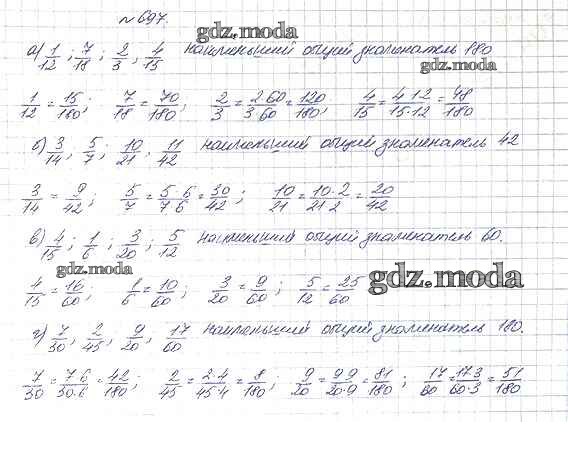 № 697.
gdz.moda
а) 1/12 ; 7/18 ; 2/3 ; 4/15 наименьший общий знаменатель 180
gdz.moda
1/12 = 15/180 ; 7/18 = 70/180 ; 2/3 = 2·60/3·60 = 120/180 ; 4/15 = 4·12/15·12 = 48/180
б) 3/14 ; 5/7 ; 10/21 ; 11/42 наименьший общий знаменатель 42
3/14 = 9/42 ; 5/7 = 5·6/7·6 = 30/42 ; 10/21 = 10·2/21·2 = 20/42
в) 4/15 ; 1/6 ; 3/20 ; 5/12 наименьший общий знаменатель 60.
gdz.moda
gdz.moda
4/15 = 16/60 ; 1/6 = 10/60 ; 3/20 = 9/60 ; 5/12 = 25/60
г) 7/30 ; 2/45 ; 9/20 ; 17/60 наименьший общий знаменатель 180.
7/30 = 7·6/30·6 = 42/180 ; 2/45 = 2·4/45·4 = 8/180 ; 9/20 = 9·9/20·9 = 81/180 ; 17/60 = 17·3/60·3 = 51/180